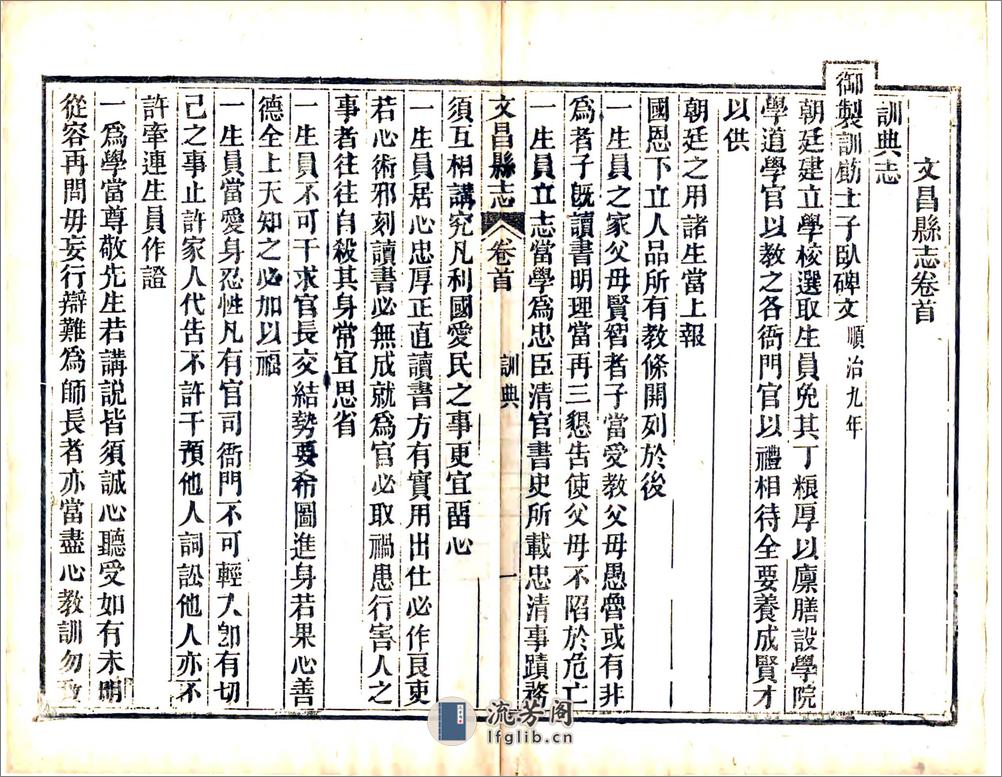 文昌縣志卷首
訓典志
御製訓飭士子臥碑文順治九年
朝廷建立學校選取生員免其丁粮厚以廩膳設學院
學道學官以教之各衙門官以禮相待全要養成賢才
以供
朝廷之用諸生當上報
國恩下立人品所有教條開列於後
一生員之家父母賢智者子當受教父母愚魯或有非
爲者子旣讀書明理當再三懇告使父母不陷於危亡
一生員立志當學爲忠臣清官書史所載忠清事蹟務
文昌縣志 卷首 訓典 一
須互相講究凡利國愛民之事更宜留心
一生員居心忠厚正直讀書方有實用出仕必作良吏
若心術邪刻讀書必無成就爲官必取禍患行害人之
事者往往自殺其身常宜思省
一生員不可干求官長交結勢要希圖進身若果心善
德全上天知之必加以福
一生員當愛身忍性凡有官司衙門不可輕入卽有切
己之事止許家人代告不許干預他人詞訟他人亦不
許牽連生員作證
一爲學當尊敬先生若講說皆須誠心聽受如有未明
從容再問毋妄行辯難爲師長者亦當盡心教訓勿致
流芳阁
lfglib.cn